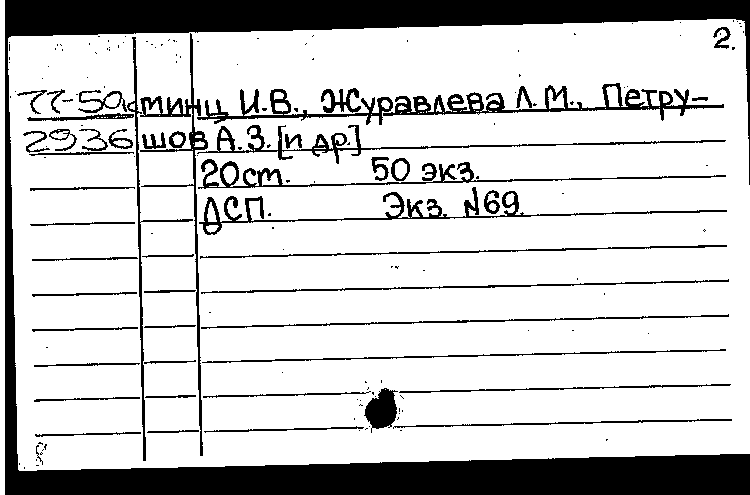 2.
77-50к минц И.В., Журавлева Л.М., Петру-
2936 шов А.З. [и др.]
20 ст. 50 экз.
ДСП. Экз. №69.
8